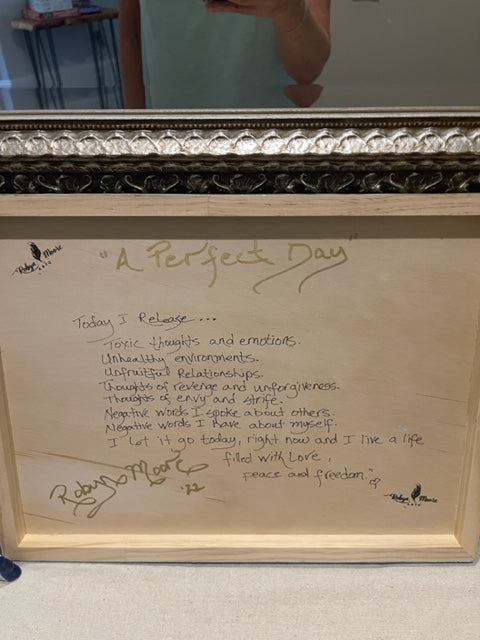 "A Perfect Day"
Robyn Moore
Today I Release...
Toxic thoughts and emotions.
Unhealthy environments.
Unfruitful Relationships.
Thoughts of revenge and unforgiveness.
Thoughts of envy and strife.
Negative words I spoke about others.
Negative words I have about myself.
I let it go today, right now and I live a life
filled with Love,
peace and freedom."
Robyn Moore
'22
Robyn Moore